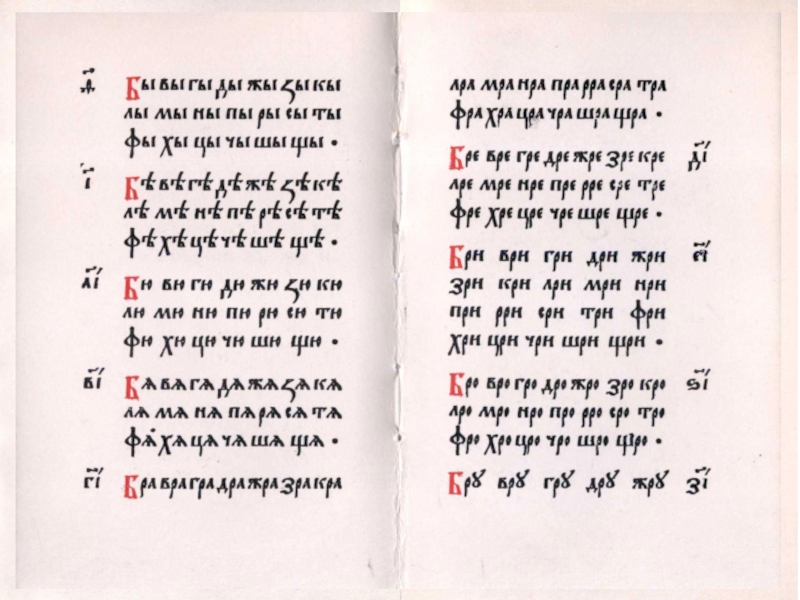 ѳ҃ Бы вы гы ды жы зы кы
лы мы ны пы ры сы ты
фы хы цы чы шы щы .
і҃ Бѣ вѣ гѣ дѣ жѣ зѣ кѣ
лѣ мѣ нѣ пѣ рѣ сѣ тѣ
фѣ хѣ цѣ чѣ шѣ щѣ .
а҃і Бю вю гю дю жю зю кю
лю мю ню пю рю сю тю
фю хю цю чю шю щю .
в҃і Бѧ вѧ гѧ дѧ жѧ зѧ кѧ
лѧ мѧ нѧ пѧ рѧ сѧ тѧ
фѧ хѧ цѧ чѧ шѧ щѧ .
г҃і Бра вра гра дра жра зра кра
лра мра нра пра рра сра тра
фра хра цра чра шра щра .
Бре вре гре дре жре зре кре д҃і
лре мре нре пре рре сре тре
фре хре цре чре шре щре .
Бри ври гри дри жри е҃і
зри кри лри мри нри
при рри сри три фри
хри цри чри шри щри .
Бро вро гро дро жро зро кро ѕ҃і
лро мро нро про рро сро тро
фро хро цро чро шро щро .
Брꙋ врꙋ грꙋ дрꙋ жрꙋ з҃і